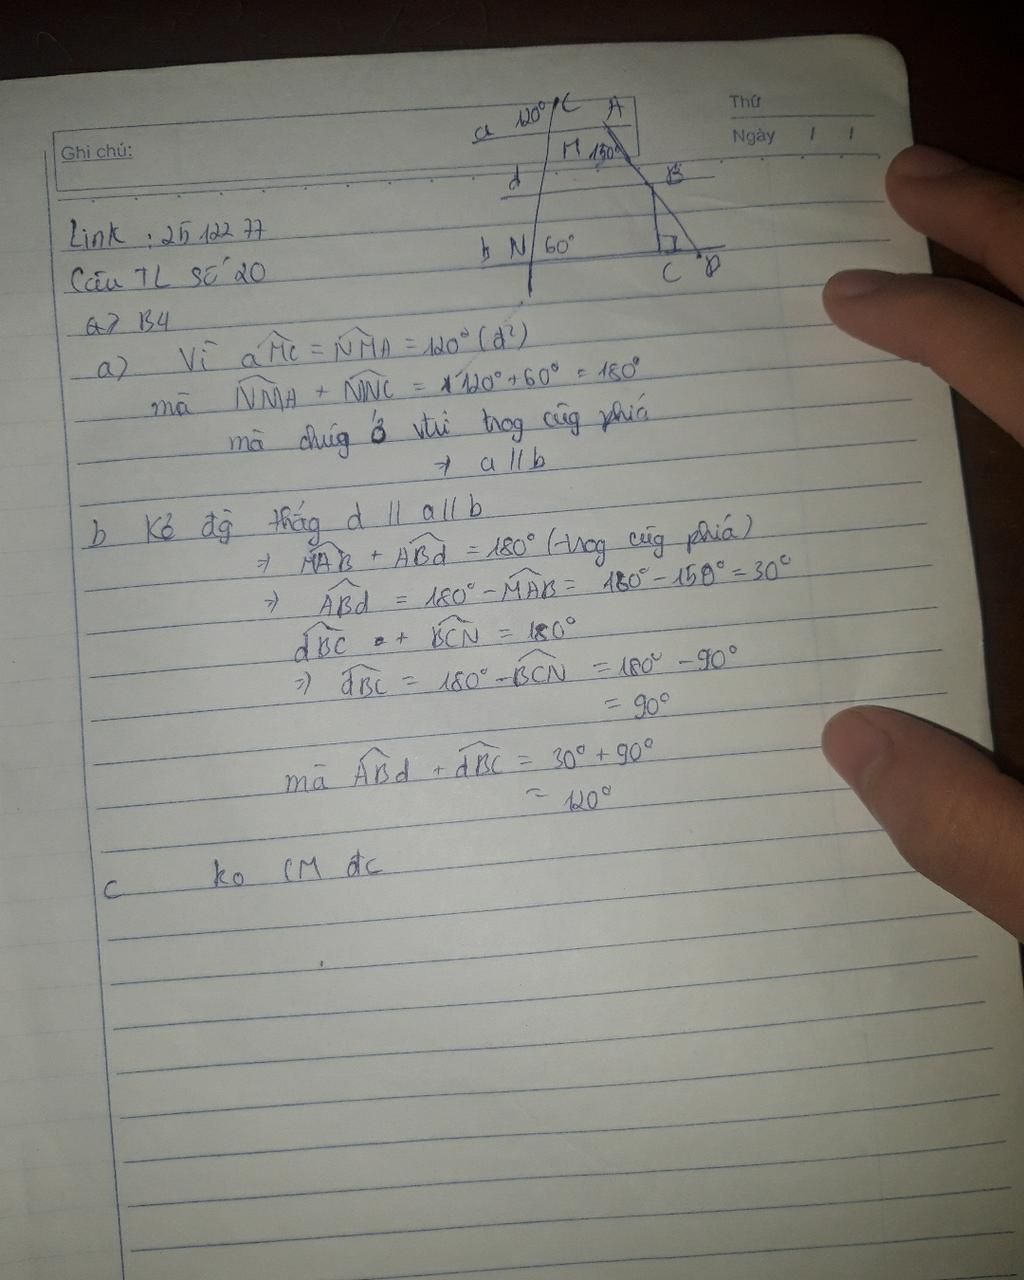 Thứ
Ngày / /
Ghi chú:
a 120° c A
M 150°
d B
b N 60°
C D
Link : 25 122 77
Câu TL số 20
a> B4
a) Vì aMc = NMA = 120° (đ²)
mà NMA + MNC = 120° + 60° = 180°
mà chúg ở vtri trog cùg phiá
⇒ a // b
b Kẻ đg thẳg d // a // b
⇒ MAB + ABd = 180° (trog cùg phiá)
⇒ ABd = 180° - MAB = 180° - 150° = 30°
dBC + BCN = 180°
⇒ dBC = 180° - BCN = 180° - 90°
= 90°
mà ABd + dBC = 30° + 90°
= 120°
c ko CM đc